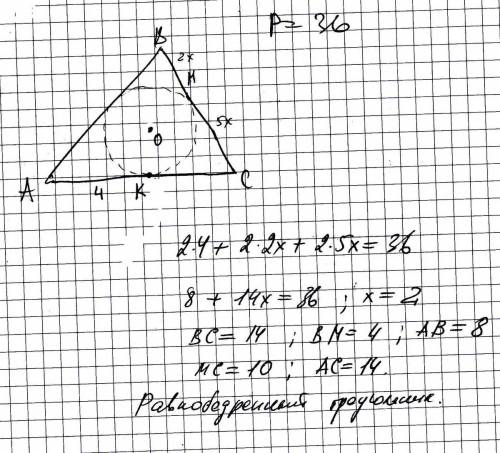 P = 36
B
2x
M
5x
O
A
4
K
C
2·4 + 2·2x + 2·5x = 36
8 + 14x = 36 ; x = 2
BC = 14 ; BM = 4 ; AB = 8
MC = 10 ; AC = 14.
Равнобедренный треугольник.